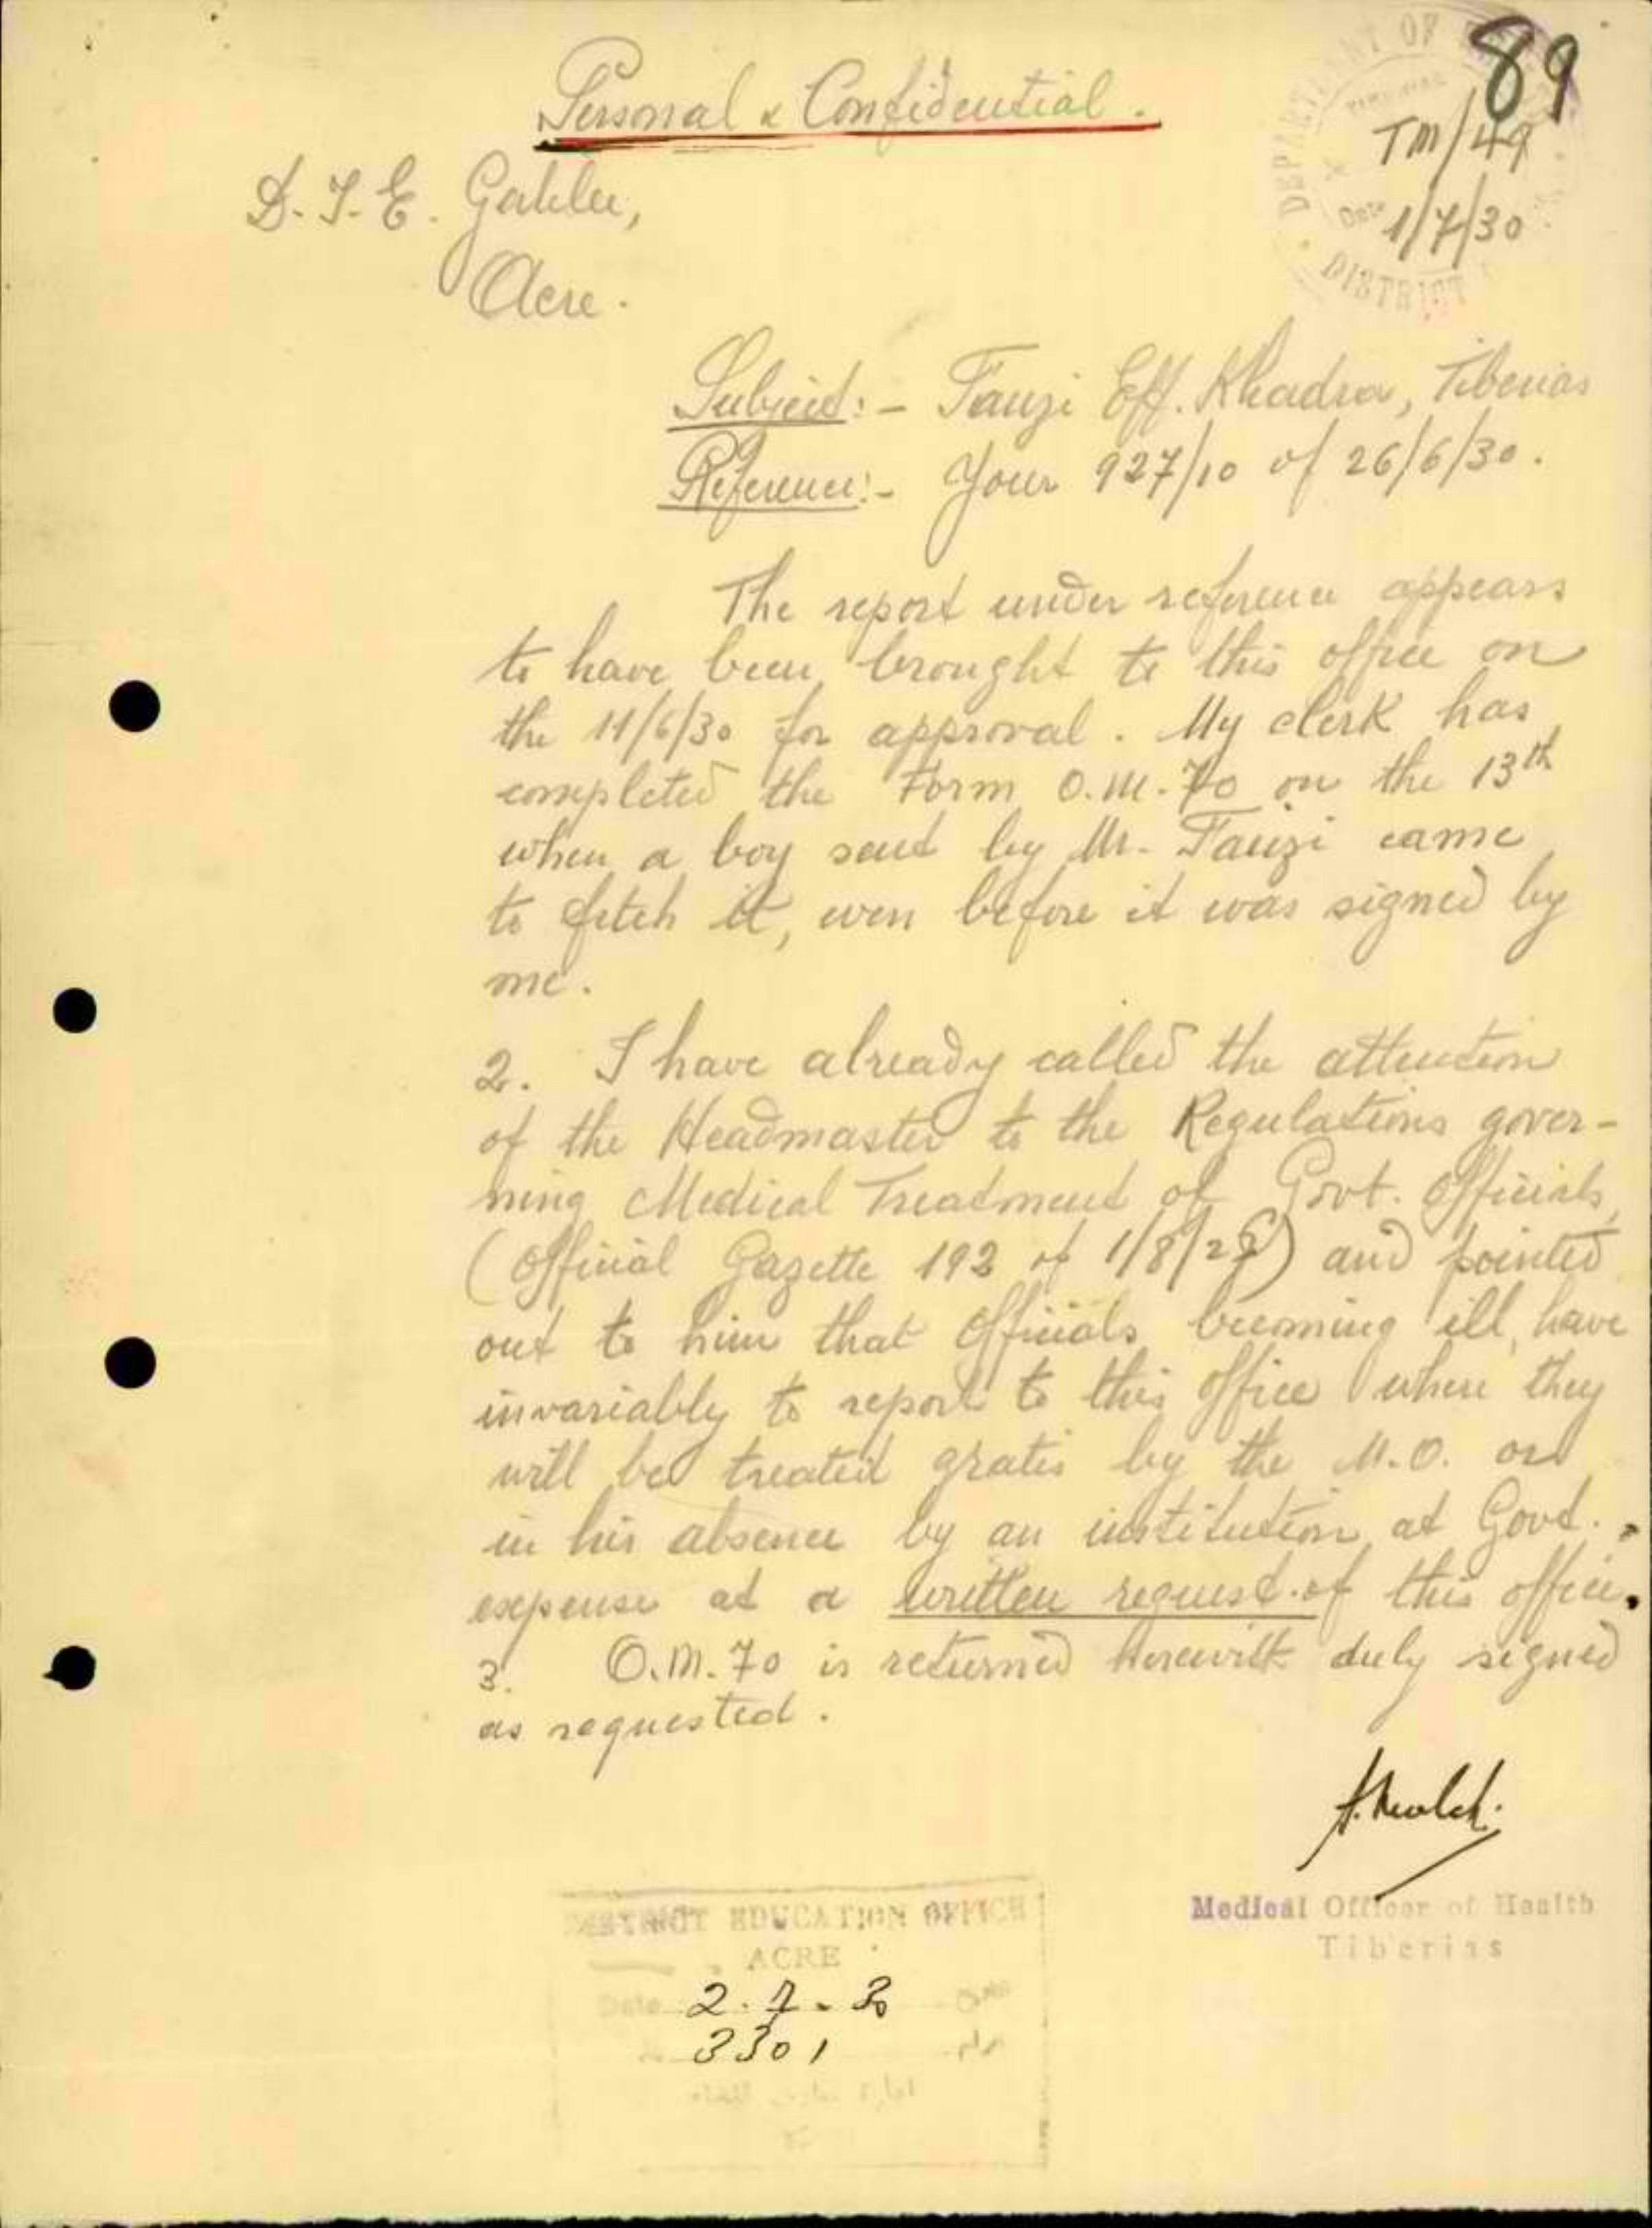 89
Personal & Confidential.
DEPARTMENT OF
TM/49
Date 1/7/30
DISTRICT
D.I.E. Galilee,
Acre.
Subject:- Fauzi Eff. Khadra, Tiberias
Reference:- Your 927/10 of 26/6/30.
The report under reference appears
to have been brought to this office on
the 11/6/30 for approval. My clerk has
completed the Form O.M.70 on the 13th
when a boy sent by Mr. Fauzi came
to fetch it, even before it was signed by
me.
2. I have already called the attention
of the Headmaster to the Regulations gover-
ning Medical Treatment of Govt. Officials,
(Official Gazette 192 of 1/8/) and pointed
out to him that Officials becoming ill, have
invariably to report to this office where they
will be treated gratis by the M.O. or
in his absence by an institution at Govt.
expense at a written request of this office.
3. O.M.70 is returned herewith duly signed
as requested.
Medical Officer of Health
Tiberias
DISTRICT EDUCATION OFFICE
ACRE
Date 2.7.30
3301